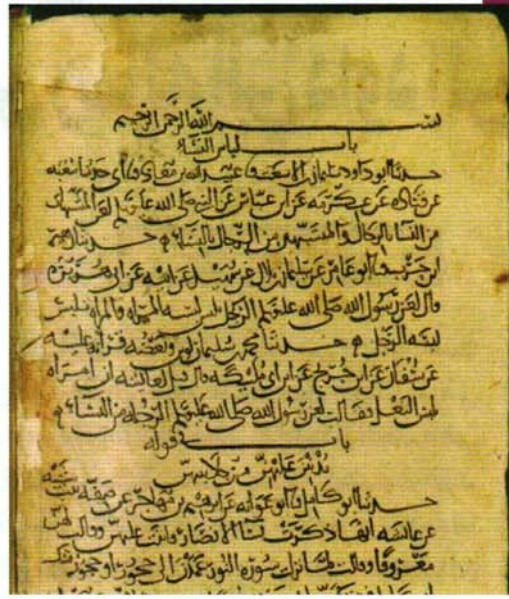 بسم الله الرحمن الرحيم
باب لباس النساء
حدثنا ابو داود سليمان بن الاشعث عبيد الله بن معاذ ابي حدثنا شعبه
عن قتاده عن عكرمه عن ابن عباس عن النبي صلى الله عليه لعن المتشبهات
من النساء بالرجال والمتشبهين من الرجال بالنساء حدثنا زهير
ابن حرب ابو عامر عن سليمان بن بلال عن سهيل عن ابيه عن ابي هريره
قال لعن رسول الله صلى الله عليه الرجل يلبس لبسه المراه والمراه تلبس
لبسه الرجل حدثنا محمد بن سليمان لوين وبعضه قراه عليه
عن سفيان عن ابن جريج عن ابن ابي مليكه قال قيل لعائشه ان امراه
تلبس النعل فقالت لعن رسول الله صلى الله عليه الرجله من النساء
باب قوله
يدنين عليهن من جلابيبهن
حدثنا ابو كامل ابو عوانه عن ابرهيم بن مهاجر عن صفيه بنت شيبه
عن عائشه انها ذكرت نسا الانصار فاثنت عليهن وقالت لهن
معروفا وقالت لما نزلت سوره النور عمدن الى حجور او حجوز